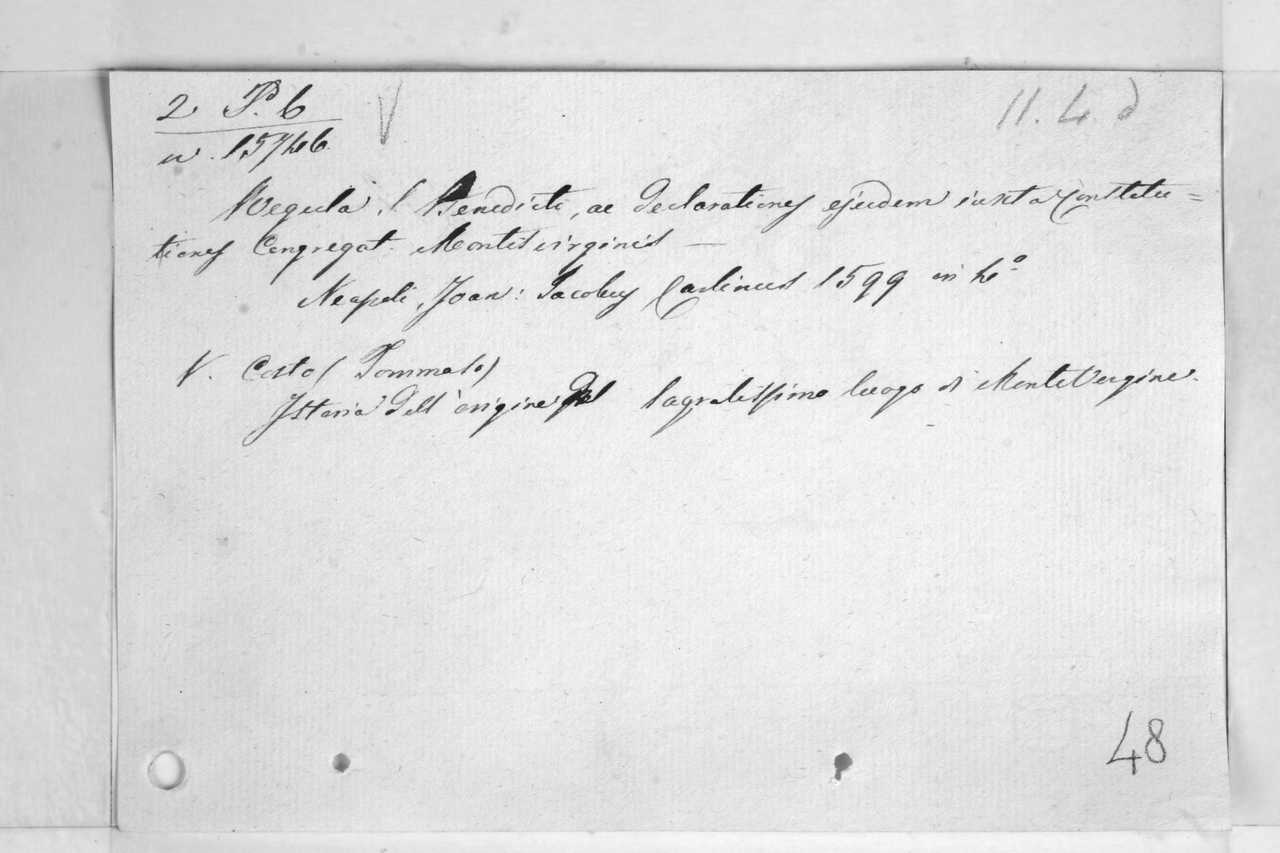 2 P. 6 V 11. 4. d
n. 15746
Regula S. Benedicti, ac Declarationes ejusdem iuxta Constitu=
tiones Congregat. Montisvirginis —
Neapoli Joan: Jacobus Carlinus 1599 in 4.º
V. Costo (Tommaso)
Istoria dell'origine del sagratissimo luogo di MonteVergine.
48